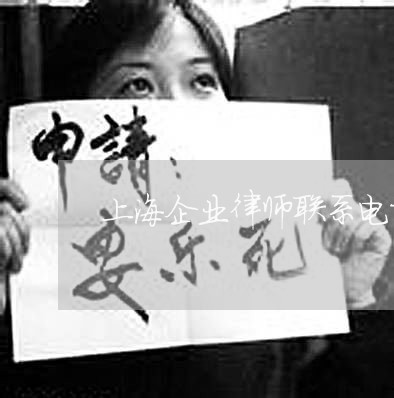 申請：
上海企业律师联系电
安乐死